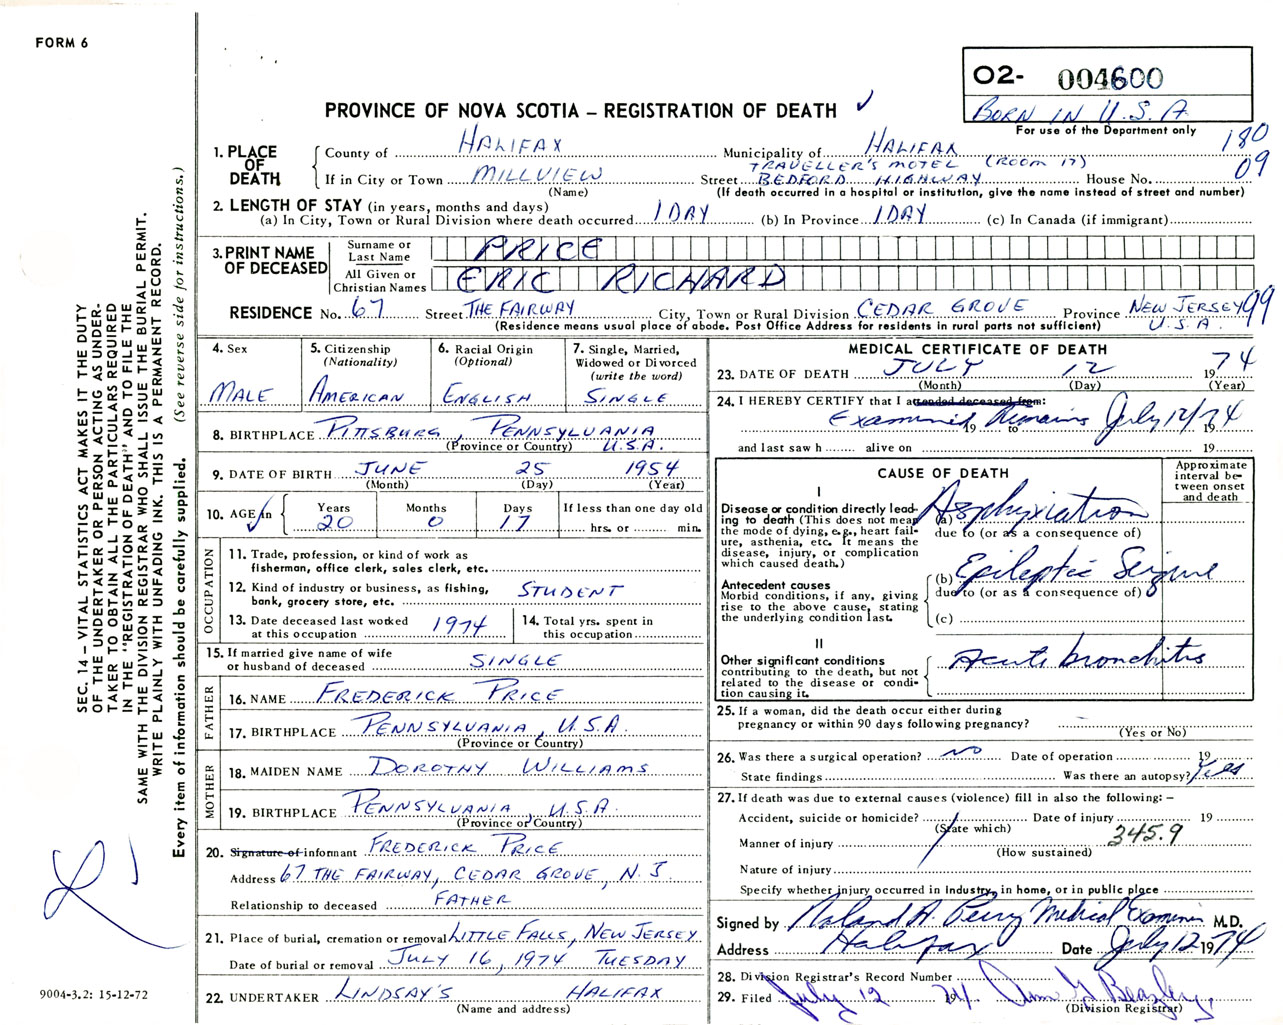 FORM 6
O2- 004600
BORN IN U.S.A.
For use of the Department only
PROVINCE OF NOVA SCOTIA – REGISTRATION OF DEATH ✓
180
09
1. PLACE OF DEATH
County of HALIFAX Municipality of HALIFAX
TRAVELLER'S MOTEL (ROOM 17)
If in City or Town MILLVIEW Street BEDFORD HIGHWAY House No.
(Name) (If death occurred in a hospital or institution, give the name instead of street and number)
2. LENGTH OF STAY (in years, months and days)
(a) In City, Town or Rural Division where death occurred 1 DAY (b) In Province 1 DAY (c) In Canada (if immigrant)
3. PRINT NAME OF DECEASED
Surname or Last Name PRICE
All Given or Christian Names ERIC RICHARD
RESIDENCE No. 67 Street THE FAIRWAY City, Town or Rural Division CEDAR GROVE Province NEW JERSEY 99
U.S.A.
(Residence means usual place of abode. Post Office Address for residents in rural parts not sufficient)
4. Sex
MALE
5. Citizenship
(Nationality)
AMERICAN
6. Racial Origin
(Optional)
ENGLISH
7. Single, Married,
Widowed or Divorced
(write the word)
SINGLE
8. BIRTHPLACE PITTSBURG, PENNSYLVANIA
(Province or Country) U.S.A.
9. DATE OF BIRTH JUNE 25 1954
(Month) (Day) (Year)
10. AGE in ✓
Years Months Days If less than one day old
20 0 17 hrs. or min.
OCCUPATION
11. Trade, profession, or kind of work as
fisherman, office clerk, sales clerk, etc.
12. Kind of industry or business, as fishing,
bank, grocery store, etc. STUDENT
13. Date deceased last worked
at this occupation 1974
14. Total yrs. spent in
this occupation
15. If married give name of wife
or husband of deceased SINGLE
FATHER
16. NAME FREDERICK PRICE
17. BIRTHPLACE PENNSYLVANIA, U.S.A.
(Province or Country)
MOTHER
18. MAIDEN NAME DOROTHY WILLIAMS
19. BIRTHPLACE PENNSYLVANIA, U.S.A.
(Province or Country)
20. Signature of informant FREDERICK PRICE
Address 67 THE FAIRWAY, CEDAR GROVE, N.J.
Relationship to deceased FATHER
21. Place of burial, cremation or removal LITTLE FALLS, NEW JERSEY
Date of burial or removal JULY 16, 1974 TUESDAY
22. UNDERTAKER LINDSAY'S HALIFAX
(Name and address)
MEDICAL CERTIFICATE OF DEATH
23. DATE OF DEATH JULY 12 1974
(Month) (Day) (Year)
24. I HEREBY CERTIFY that I attended deceased from:
Examined Remains July 12/74
19 to 19
and last saw h alive on 19
CAUSE OF DEATH
Approximate
interval be-
tween onset
and death
I
Disease or condition directly lead-
ing to death (This does not mean
the mode of dying, e.g., heart fail-
ure, asthenia, etc. It means the
disease, injury, or complication
which caused death.)
(a) Asphyxiation
due to (or as a consequence of)
Antecedent causes
Morbid conditions, if any, giving
rise to the above cause, stating
the underlying condition last.
(b) Epileptic Seizure
due to (or as a consequence of)
(c)
II
Other significant conditions
contributing to the death, but not
related to the disease or condi-
tion causing it.
Acute bronchitis
25. If a woman, did the death occur either during
pregnancy or within 90 days following pregnancy?
(Yes or No)
26. Was there a surgical operation? no Date of operation 19
State findings Was there an autopsy? Yes
27. If death was due to external causes (violence) fill in also the following: –
Accident, suicide or homicide? Date of injury 19
(State which) 345.9
Manner of injury
(How sustained)
Nature of injury
Specify whether injury occurred in industry, in home, or in public place
Signed by Roland A. Perry Medical Examiner M.D.
Address Halifax Date July 12 1974
28. Division Registrar's Record Number
29. Filed July 12 1974
(Division Registrar)
SEC. 14 – VITAL STATISTICS ACT MAKES IT THE DUTY
OF THE UNDERTAKER OR PERSON ACTING AS UNDER-
TAKER TO OBTAIN ALL THE PARTICULARS REQUIRED
IN THE "REGISTRATION OF DEATH" AND TO FILE THE
SAME WITH THE DIVISION REGISTRAR WHO SHALL ISSUE THE BURIAL PERMIT.
WRITE PLAINLY WITH UNFADING INK. THIS IS A PERMANENT RECORD.
Every item of information should be carefully supplied. (See reverse side for instructions.)
9004-3.2: 15-12-72